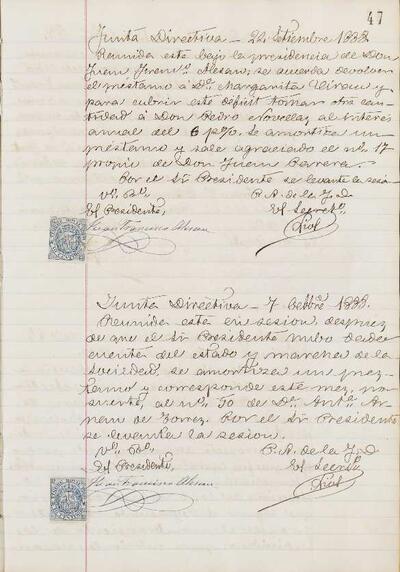 47
Junta Directiva - 24 Setiembre 1888
Reunida esta bajo la presidencia de Don
Juan Franco. Alesan, se acuerda devolver
el préstamo á Da. Margarita
para cubrir este déficit tomar otra can-
tidad á Don Pedro Novellas, al interés
anual del 6 p%. Se amortiza un
préstamo y sale agraciado el no. 17
propio de Don Juan Parera.
Por el Sr. Presidente se levanta la sesion
Vo. Bo.
P. A. de la J. D.
El Presidente,
El Secreto.
Juan Francisco Alesan
Junta Directiva - 7 1888.
Reunida esta en sesion, despues
de que el Sr. Presidente hubo dado
cuenta del estado y marcha de la
Sociedad, se amortiza un prez-
tamo y corresponde este mez,
al no. 50 de Da. Anta.
de Torrez. Por el Sr. Presidente
se levanta la sesion.
Vo. Bo.
P. A. de la J. D.
El Presidente,
El Secreto.
Juan Francisco Alesan